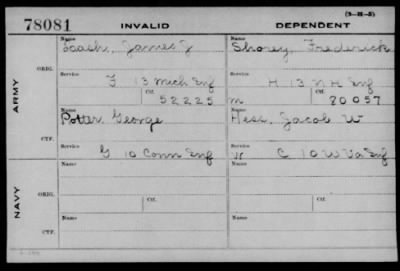 (3—H—5)
78081 INVALID DEPENDENT
Name Name
James J Shorey, Frederick
ORIG. Service Service
F 13 Mich Inf H 13 N H Inf
ARMY Ctf. Ctf.
52225 m 80057
Name Name
Potter, George Hess, Jacob W
CTF. Service Service
G 10 Conn Inf W C 10 W Va Inf
Name Name
ORIG. Ctf. Ctf.
NAVY
Name Name
CTF.